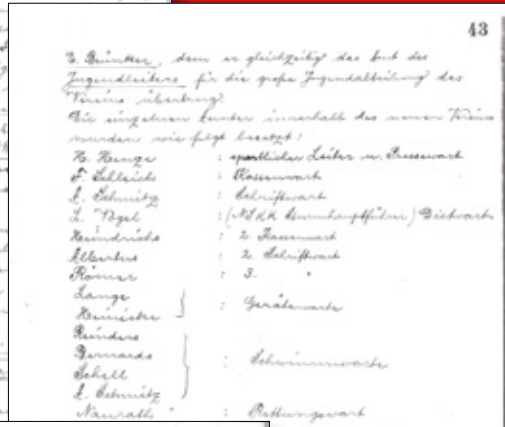 43
E. Bünker, dem er gleichzeitig das Amt des
Jugendleiters für die große Jugendabteilung des
Vereins übertrug.
Die einzelnen Ämter innerhalb des neuen Vereins
wurden wie folgt besetzt:
H. Henze : sportlicher Leiter u. Pressewart
F. Schleichs : Kassenwart
A. Schmitz : Schriftwart
L. Vogel : (NSKK Sturmhauptführer) Dietwart
Heindrichs : 2. Kassenwart
Albertus : 2. Schriftwart
Römer : 3. "
Lange
: Gerätewarte
Heinicke
Reinders
Bernards
: Schwimmwarte
Schell
A. Schmitz
Naurath : Rettungswart